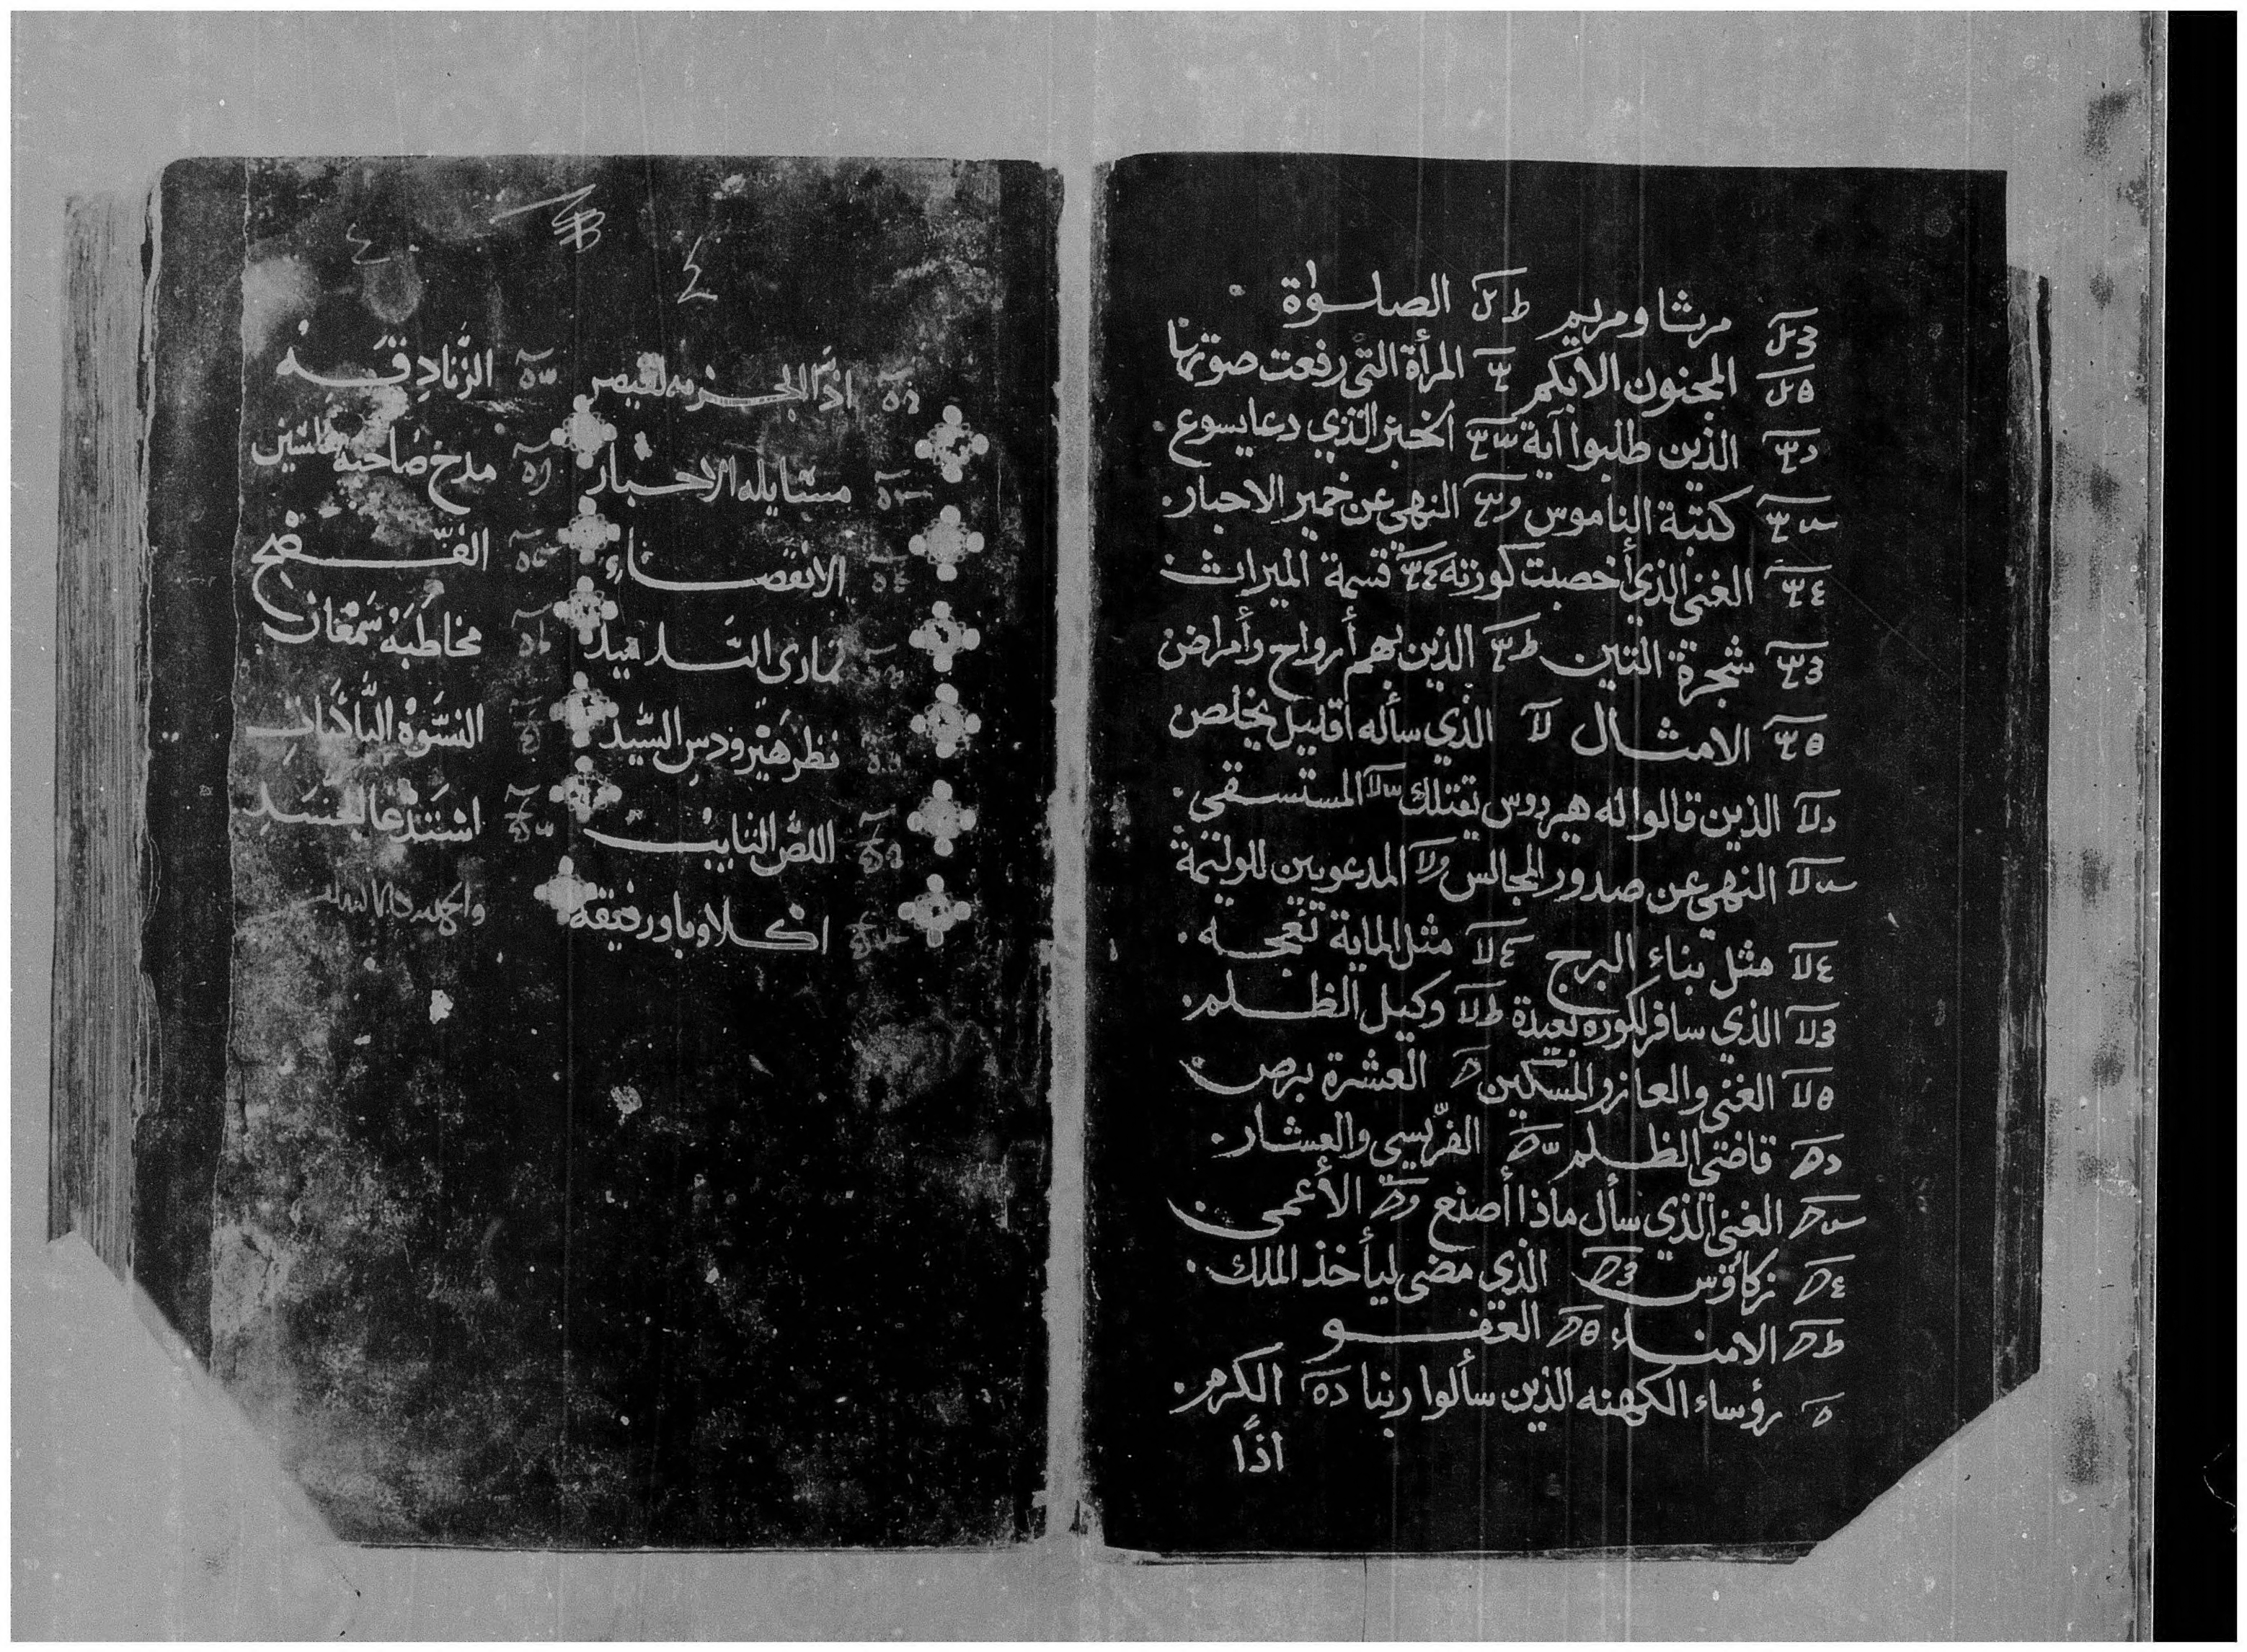 مرثا ومريم الصلوة
المجنون الأبكم المرأة التي رفعت صوتها
الذين طلبوا آية الخبز الذي دعا يسوع
كتبة الناموس النهي عن خمير الاحبار
الغني الذي أخصبت كورته قسمة الميراث
شجرة التين الذين بهم أرواح وأمراض
الامثال الذي سأله اقليل يخلص
الذين قالوا له هيردوس يقتلك المستسقي
النهي عن صدور المجالس المدعويين للوليمة
مثل بناء البرج مثل الماية نعجه
الذي سافر لكوره بعيدة وكيل الظلم
الغني والعازر المسكين العشرة برص
قاضي الظلم الفريسي والعشار
الغني الذي سأل ماذا أصنع الأعمى
زكاؤس الذي مضى ليأخذ الملك
الامناء العفو
رؤساء الكهنه الذين سألوا ربنا الكرم
اذًا
٤
اذًا الجزيه لقيصر الزَّنادقَه
مسايله الاحبار مدح صاحبة فلسين
الانقضاء الفصح
تماري التلاميذ مخاطبه سمعان
نظر هيرودس السيد النسوه الباكيات
اللص التايب استدعا الجسد
اكلاوبا ورفيقه